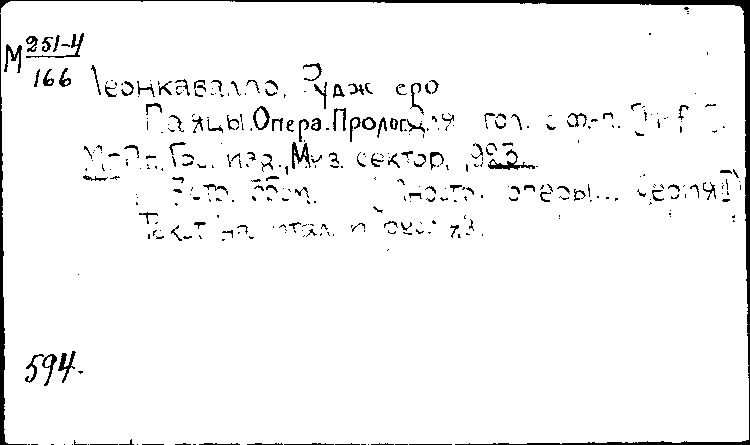 М 251-4
166
Леонкавалло, Руджеро
Паяцы. Опера. Пролог. Для гол. с ф.-п.
М.-Пг., Гос. изд., Муз. сектор, 1923.
7 стр. 35см. (Иностр. оперы... Серия I)
Текст на итал. и русс. яз.
594.